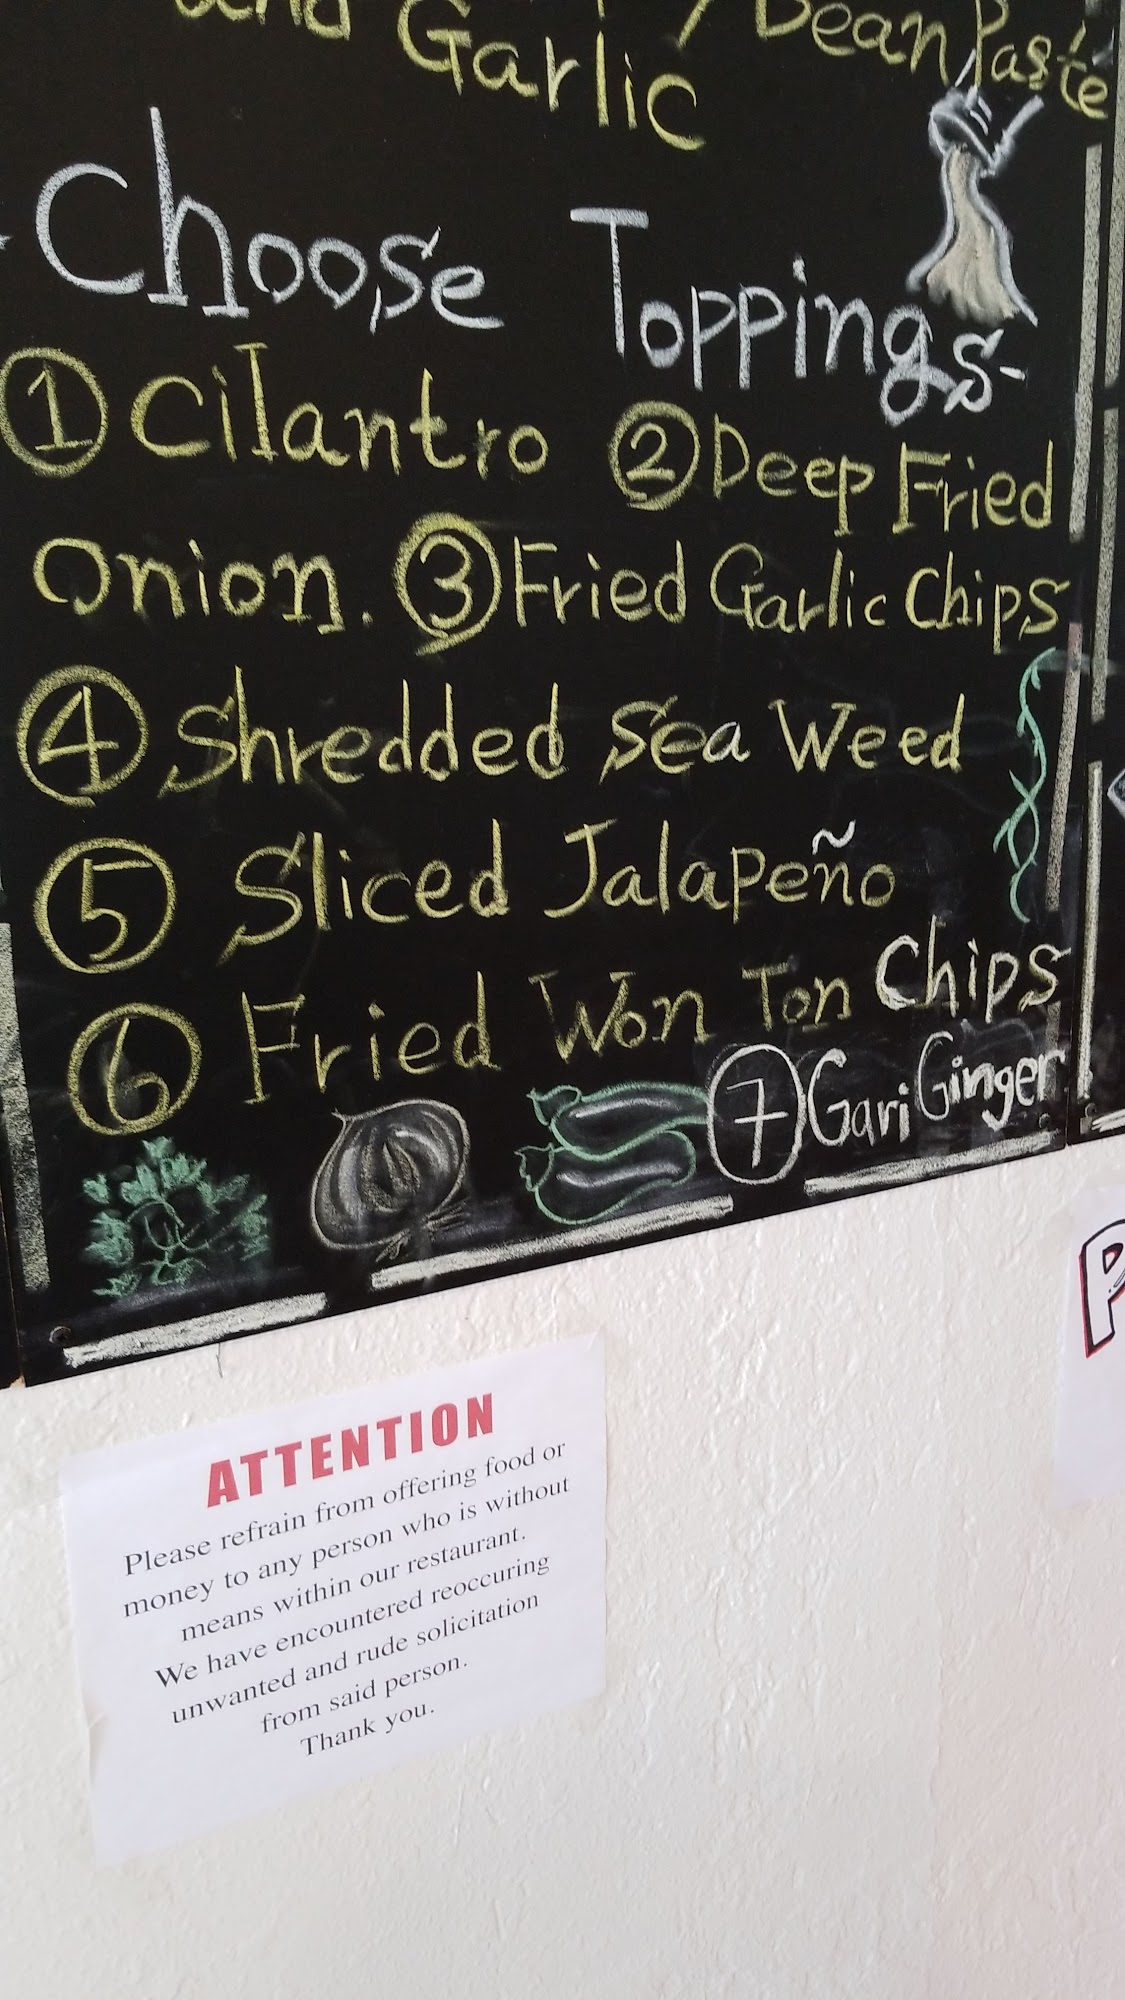 and Garlic / Bean Paste
-Choose Toppings-
① Cilantro ② Deep Fried
Onion. ③ Fried Garlic Chips
④ Shredded Sea Weed
⑤ Sliced Jalapeño
⑥ Fried Won Ton Chips
⑦ Gari Ginger
ATTENTION
Please refrain from offering food or
money to any person who is without
means within our restaurant.
We have encountered reoccuring
unwanted and rude solicitation
from said person.
Thank you.
P